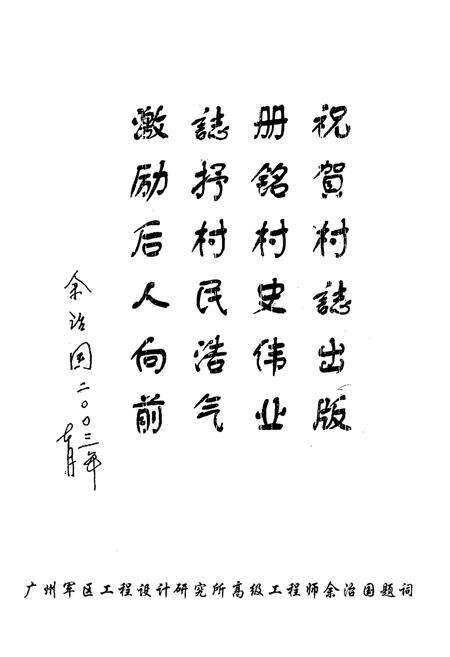 祝賀村誌出版
册銘村史伟业
誌抒村民浩气
激励后人向前
余治国二〇〇三年
七月
广州军区工程设计研究所高级工程师余治国题词